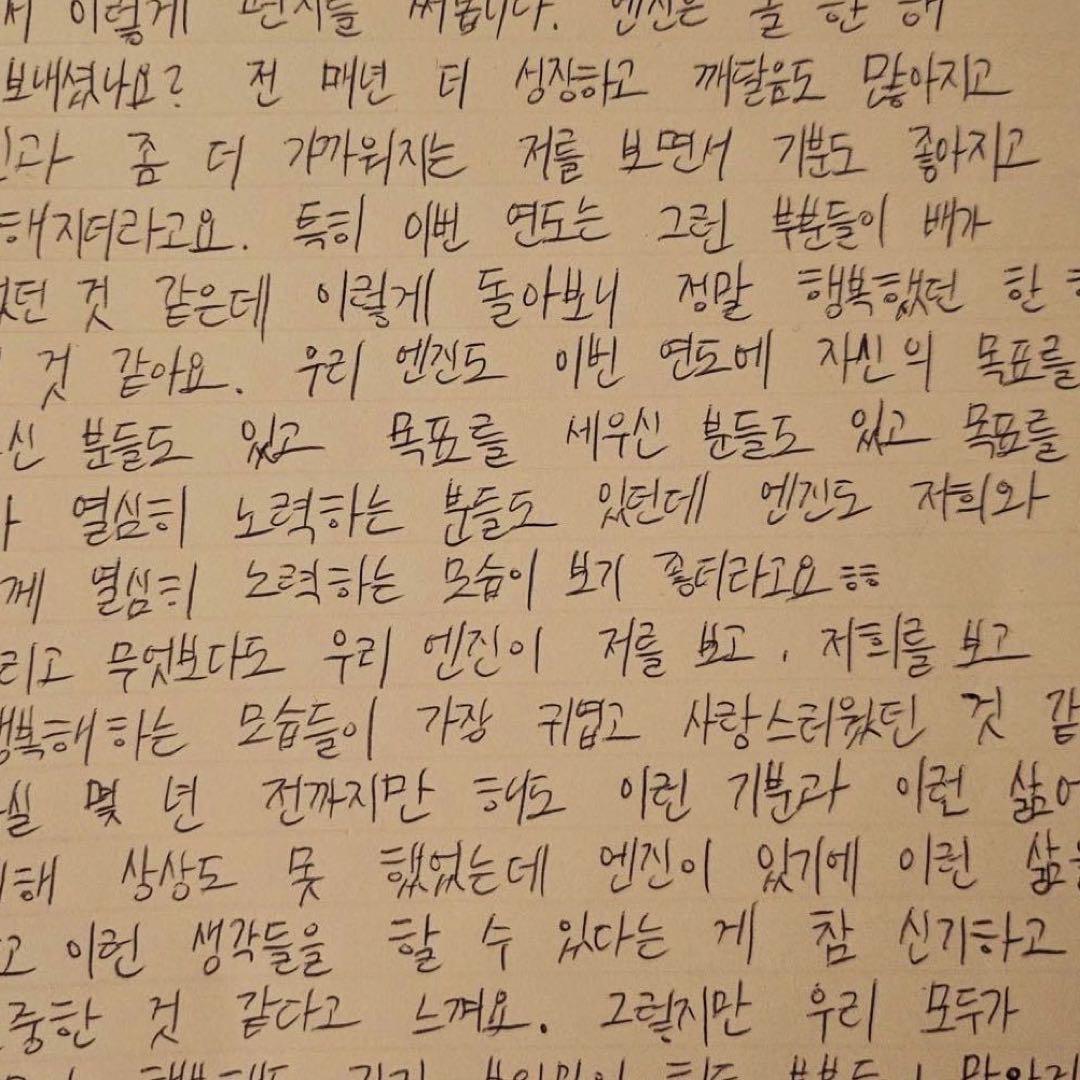 이렇게 편지를 써봅니다. 엔진은 올 한 해
보내셨나요? 전 매년 더 성장하고 깨달음도 많아지고
좀 더 가까워지는 저를 보면서 기분도 좋아지고
해지더라고요. 특히 이번 연도는 그런 부분들이 배가
던 것 같은데 이렇게 돌아보니 정말 행복했던 한
것 같아요. 우리 엔진도 이번 연도에 자신의 목표를
신 분들도 있고 목표를 세우신 분들도 있고 목표를
열심히 노력하는 분들도 있던데 엔진도 저희와
께 열심히 노력하는 모습이 보기 좋더라고요ㅎㅎ
리고 무엇보다도 우리 엔진이 저를 보고, 저희를 보고
행복해하는 모습들이 가장 귀엽고 사랑스러웠던 것 같
실 몇 년 전까지만 해도 이런 기분과 이런 삶에
해 상상도 못 했었는데 엔진이 있기에 이런 삶을
고 이런 생각들을 할 수 있다는 게 참 신기하고
중한 것 같다고 느껴요. 그렇지만 우리 모두가